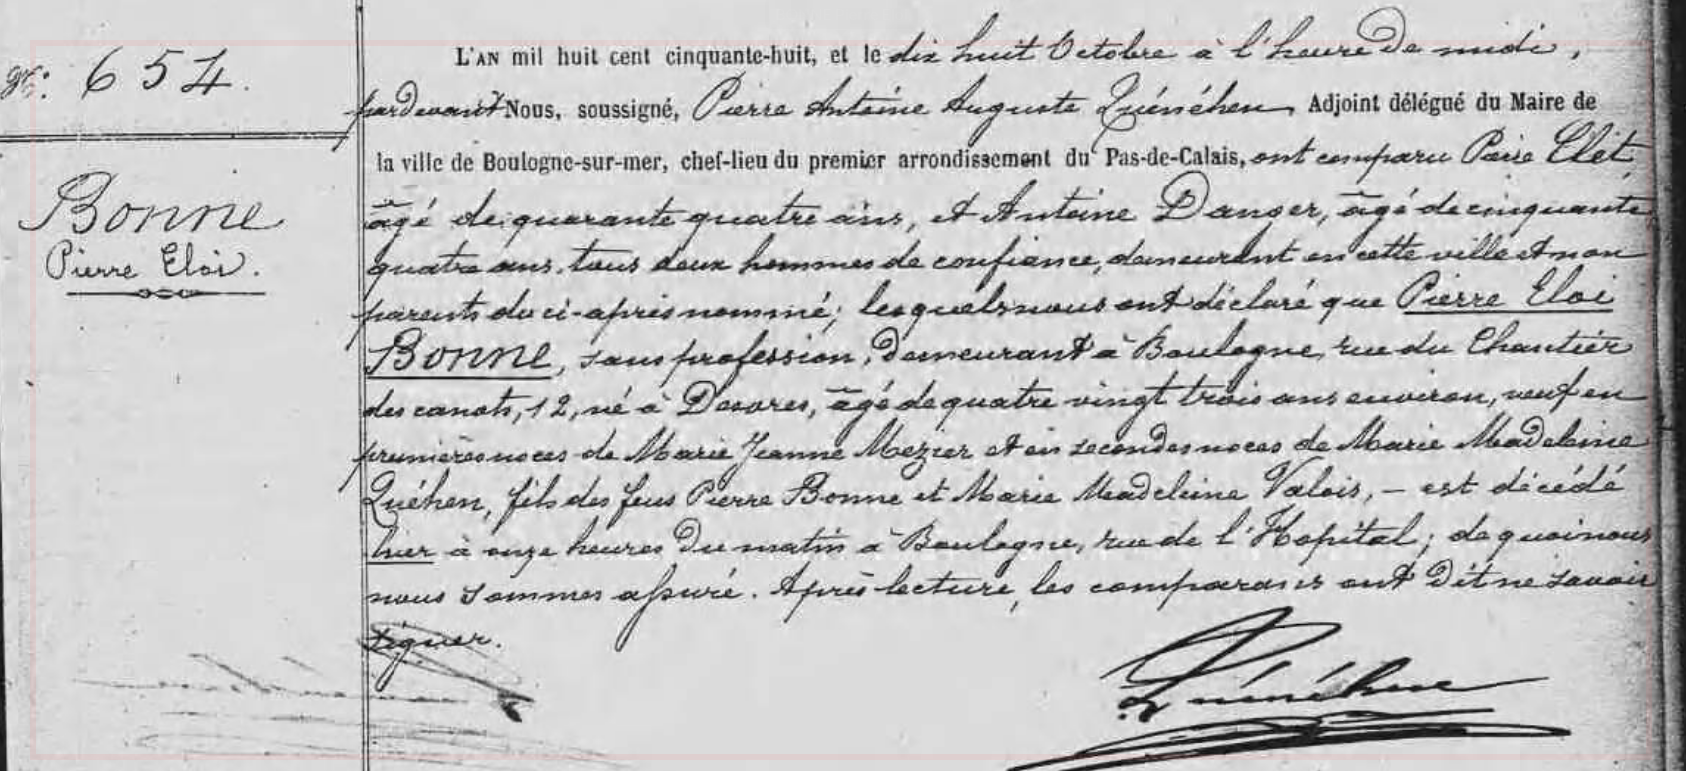 N°: 654.
Bonne
Pierre Eloi.
L'AN mil huit cent cinquante-huit, et le dix huit Octobre à l'heure de midi,
pardevant Nous, soussigné, Pierre Antoine Auguste Quénéhen, Adjoint délégué du Maire de
la ville de Boulogne-sur-mer, chef-lieu du premier arrondissement du Pas-de-Calais, ont comparu Pierre Clét
âgé de quarante quatre ans, et Antoine Danger, âgé de cinquante
quatre ans, tous deux hommes de confiance, demeurant en cette ville et non
parents du ci-après nommé; lesquels nous ont déclaré que Pierre Eloi
Bonne, sans profession, demeurant à Boulogne, rue du Chantier
des canots, 12, né à Desvres, âgé de quatre vingt trois ans environ, veuf en
premières noces de Marie Jeanne Mezier et en secondes noces de Marie Madeleine
Quéhen, fils des feus Pierre Bonne et Marie Madeleine Valois, - est décédé
hier à onze heures du matin à Boulogne, rue de l'Hopital; de quoi nous
nous sommes assuré. Après lecture, les comparans ont dit ne savoir
signer.
Quénéhen